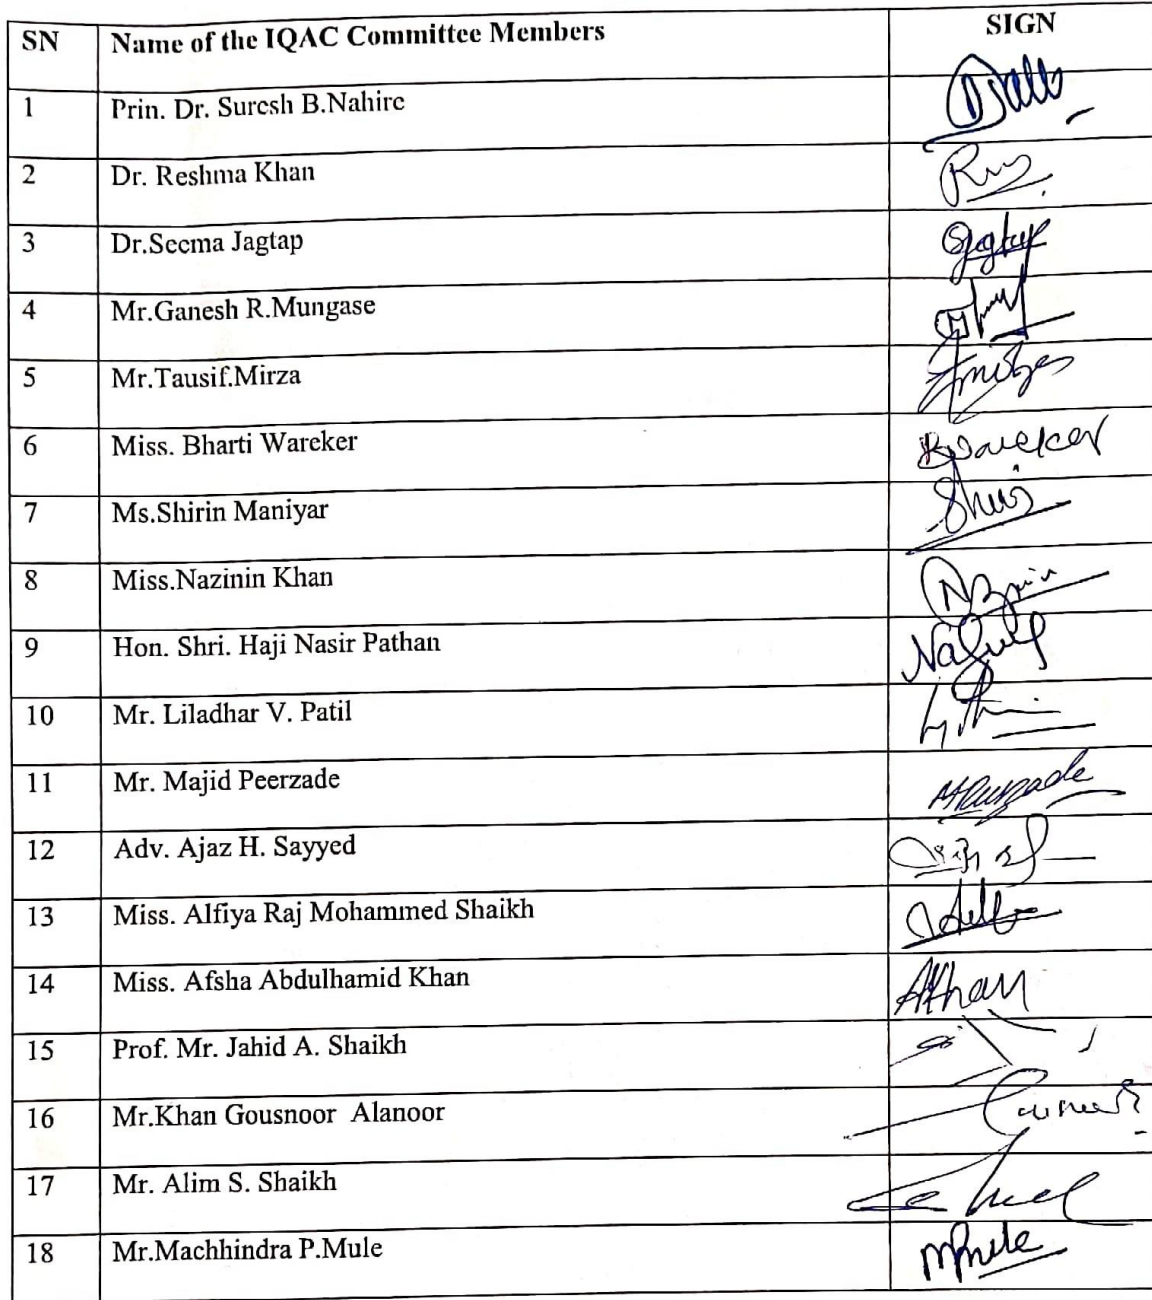 SN Name of the IQAC Committee Members SIGN
1 Prin. Dr. Suresh B.Nahire
2 Dr. Reshma Khan
3 Dr.Seema Jagtap
4 Mr.Ganesh R.Mungase
5 Mr.Tausif.Mirza
6 Miss. Bharti Wareker
7 Ms.Shirin Maniyar
8 Miss.Nazinin Khan
9 Hon. Shri. Haji Nasir Pathan
10 Mr. Liladhar V. Patil
11 Mr. Majid Peerzade
12 Adv. Ajaz H. Sayyed
13 Miss. Alfiya Raj Mohammed Shaikh
14 Miss. Afsha Abdulhamid Khan
15 Prof. Mr. Jahid A. Shaikh
16 Mr.Khan Gousnoor Alanoor
17 Mr. Alim S. Shaikh
18 Mr.Machhindra P.Mule